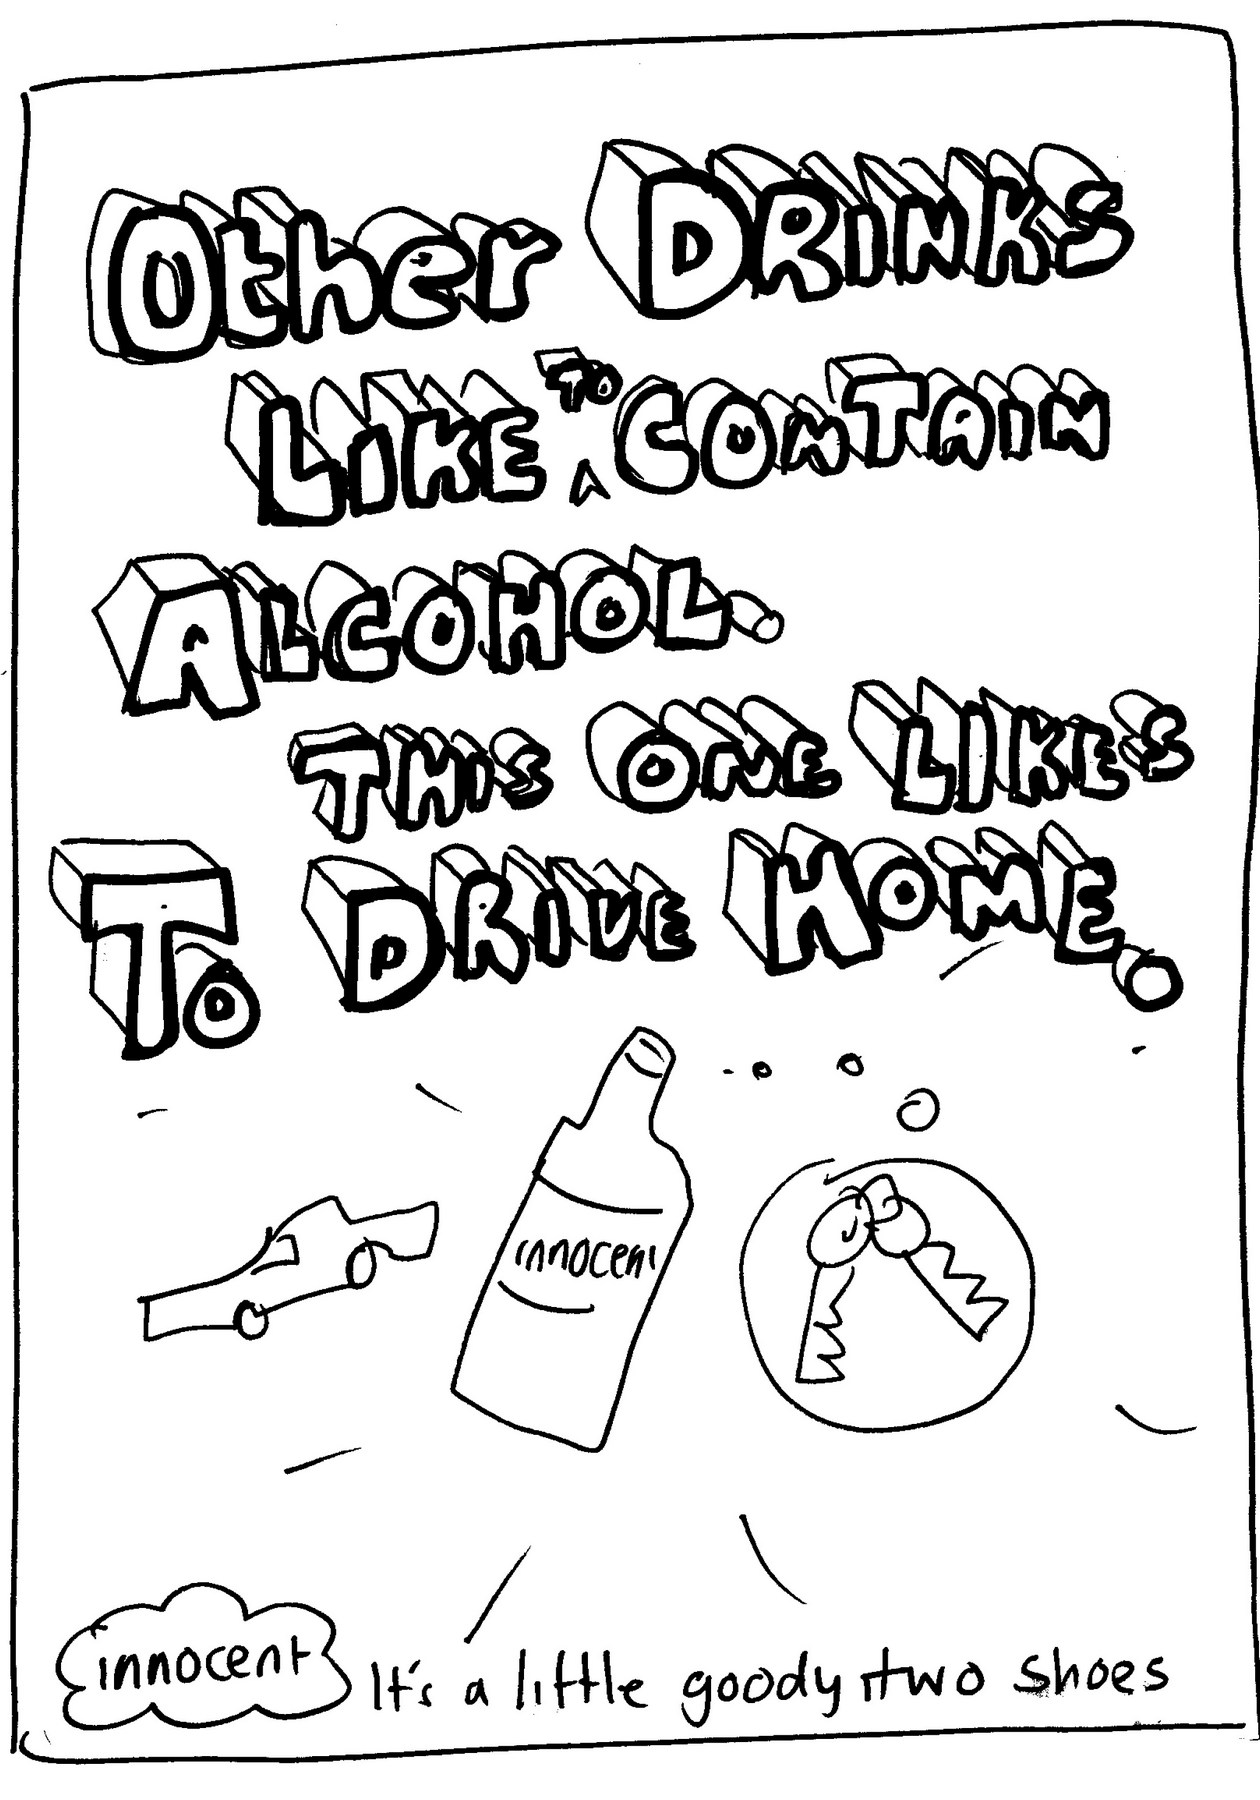 Other DRINKS
LIKE TO CONTAIN
ALCOHOL.
THIS ONE LIKES
To DRIVE HOME.
innocent
innocent It's a little goody two shoes